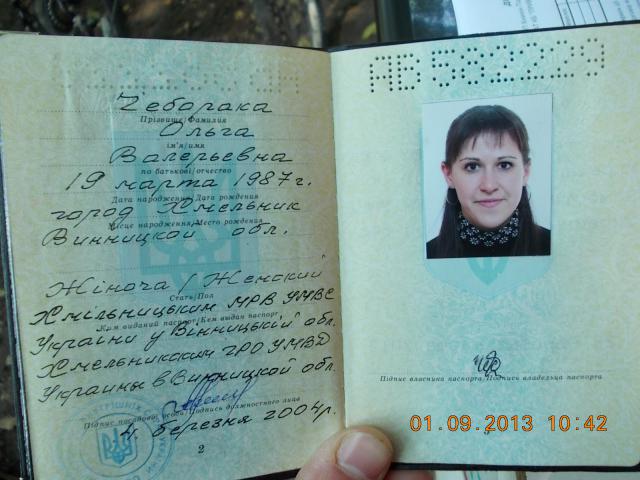 Чеборака
Прізвище/Фамилия
Ольга
ім'я/имя
Валерьевна
по батькові/отчество
19 марта 1987 г.
Дата народження/Дата рождения
город Хмельник
Місце народження/Место рождения
Винницкой обл.
Жіноча / Женский
Стать/Пол
Хмільницьким МРВ УМВС
Ким виданий паспорт/Кем выдан паспорт
України у Вінницькій обл.
Хмельникским ГРО УМВД
Украины в Винницкой обл.
Підпис посадової особи/Подпись должностного лица
березня 2004 р.
2
АВ 582229
Підпис власника паспорта/Подпись владельца паспорта
01.09.2013 10:42